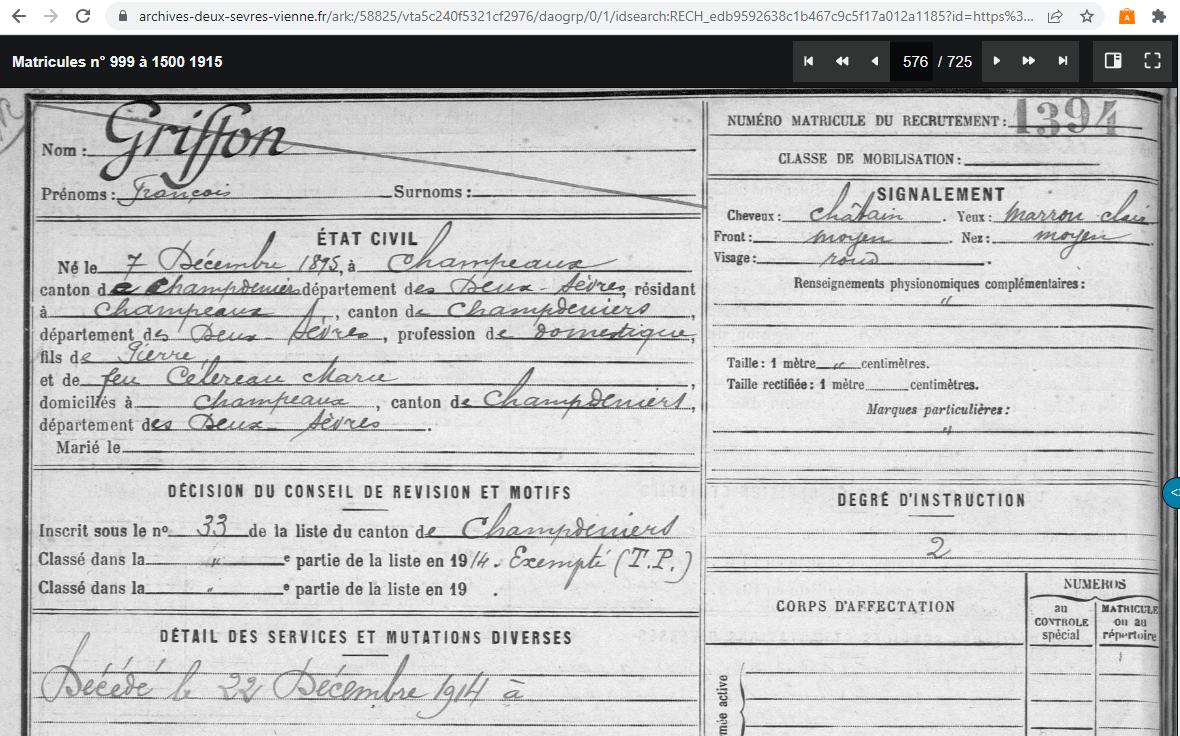 archives-deux-sevres-vienne.fr/ark:/58825/vta5c240f5321cf2976/daogrp/0/1/idsearch:RECH_edb9592638c1b467c9c5f17a012a1185?id=https%3...
Matricules n° 999 à 1500 1915
576 / 725
Nom : Griffon
Prénoms : François Surnoms :
ÉTAT CIVIL
Né le 7 Décembre 1895, à Champeaux
canton de Champdeniers département des Deux-Sèvres, résidant
à Champeaux, canton de Champdeniers,
département des Deux-Sèvres, profession de domestique,
fils de Pierre
et de feu Célereau Marie,
domiciliés à Champeaux, canton de Champdeniers,
département des Deux-Sèvres.
Marié le
DÉCISION DU CONSEIL DE REVISION ET MOTIFS
Inscrit sous le no 33 de la liste du canton de Champdeniers
Classé dans la " e partie de la liste en 1914. Exempté (T.P.)
Classé dans la " e partie de la liste en 19 .
DÉTAIL DES SERVICES ET MUTATIONS DIVERSES
Décédé le 22 Décembre 1914 à
NUMÉRO MATRICULE DU RECRUTEMENT : 1394
CLASSE DE MOBILISATION :
SIGNALEMENT
Cheveux : châtain . Yeux : marron clair
Front : moyen . Nez : moyen
Visage : rond .
Renseignements physionomiques complémentaires :
"
Taille : 1 mètre " centimètres.
Taille rectifiée : 1 mètre centimètres.
Marques particulières :
"
DEGRÉ D'INSTRUCTION
2
CORPS D'AFFECTATION
NUMEROS
au CONTROLE spécial
MATRICULE ou au répertoire
mée active